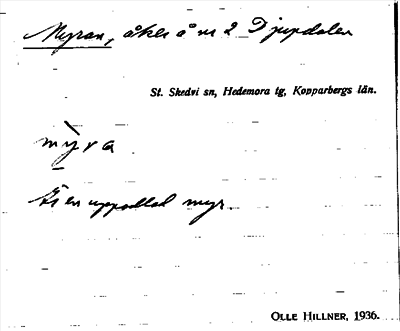 Myran, åker å nr 2 Djupdalen
St. Skedvi sn, Hedemora tg, Kopparbergs län.
mỳra
Är en uppodlad myr.
OLLE HILLNER, 1936.